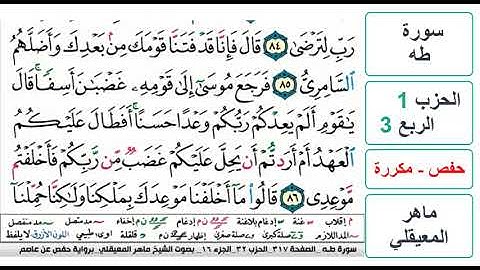 رَبِّ لِتَرْضَىٰ ٨٤ قَالَ فَإِنَّا قَدْ فَتَنَّا قَوْمَكَ مِنۢ بَعْدِكَ وَأَضَلَّهُمُ
ٱلسَّامِرِيُّ ٨٥ فَرَجَعَ مُوسَىٰٓ إِلَىٰ قَوْمِهِۦ غَضْبَٰنَ أَسِفًا ۚ قَالَ
يَٰقَوْمِ أَلَمْ يَعِدْكُمْ رَبُّكُمْ وَعْدًا حَسَنًا ۚ أَفَطَالَ عَلَيْكُمُ
ٱلْعَهْدُ أَمْ أَرَدتُّمْ أَن يَحِلَّ عَلَيْكُمْ غَضَبٌ مِّن رَّبِّكُمْ فَأَخْلَفْتُم
مَّوْعِدِى ٨٦ قَالُوا۟ مَآ أَخْلَفْنَا مَوْعِدَكَ بِمَلْكِنَا وَلَٰكِنَّا حُمِّلْنَآ
سورة طـه .. الصفحة ٣١٧ .الحزب ٣٢ .الجزء ١٦ .. بصوت الشيخ ماهر المعيقلي .. برواية حفص عن عاصم
سورة
طه
الحزب 1
الربع 3
حفص - مكررة
ماهر
المعيقلي